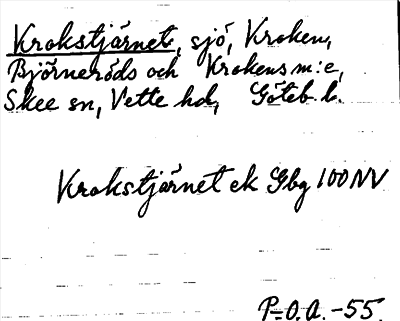 Krokstjärnet, sjö, Kroken,
Björneröds och Krokens m:e,
Skee sn, Vette hd, Göteb. l.
Krokstjärnet ek Gbg 100 NV
P-O.A. -55.